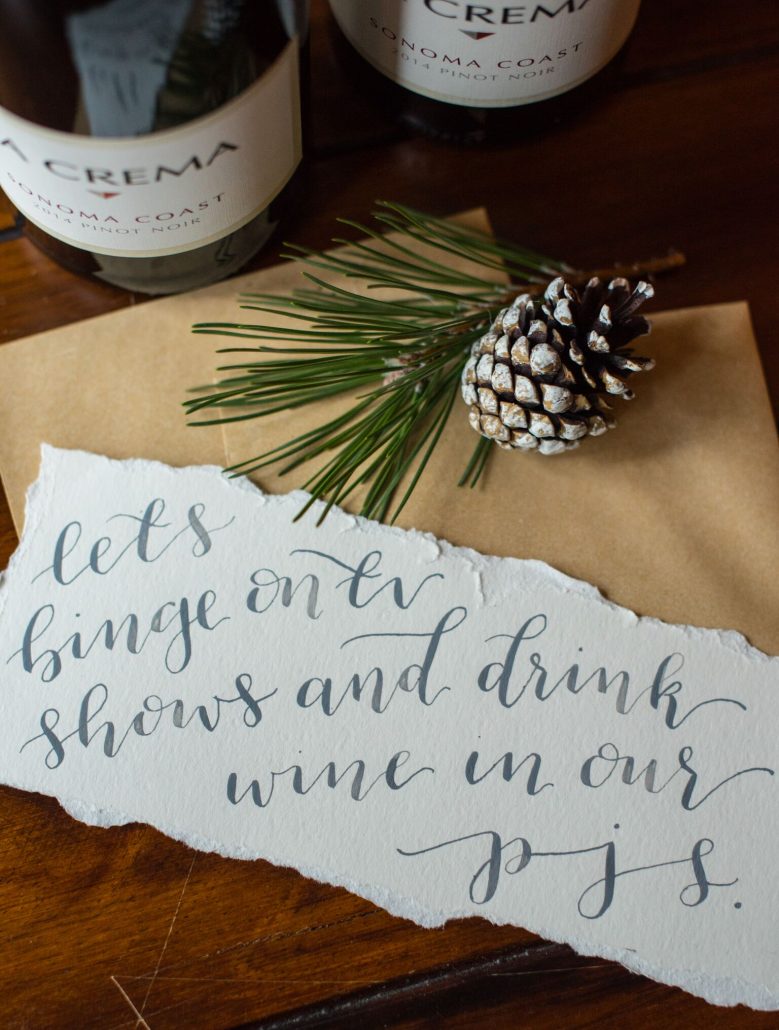 A CREMA
SONOMA COAST
2014 PINOT NOIR
A CREMA
SONOMA COAST
2014 PINOT NOIR
lets
binge on tv
shows and drink
wine in our
pjs.